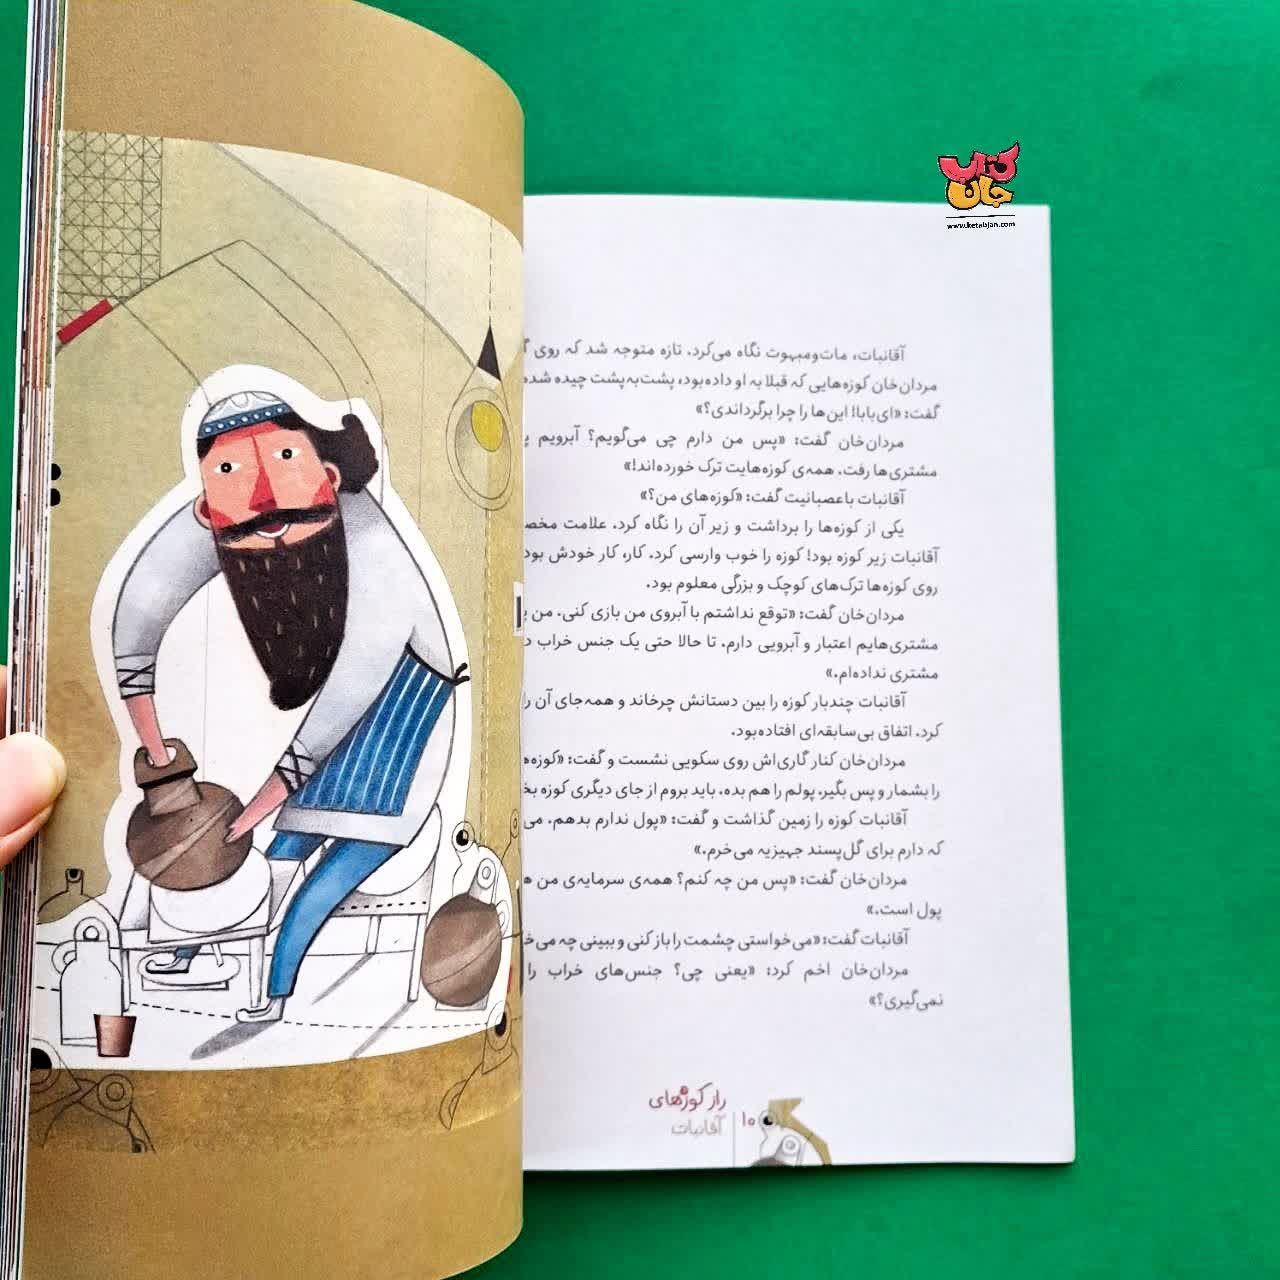 کتاب
جان
www.ketabjan.com
آقانبات، مات‌ومبهوت نگاه می‌کرد. تازه متوجه شد که روی
مردان‌خان کوزه‌هایی که قبلا به او داده بود، پشت‌به‌پشت چیده شده
گفت: «ای‌بابا! این‌ها را چرا برگرداندی؟»
مردان‌خان گفت: «پس من دارم چی می‌گویم؟ آبرویم
مشتری‌ها رفت. همه‌ی کوزه‌هایت ترک خورده‌اند!»
آقانبات با عصبانیت گفت: «کوزه‌های من؟»
یکی از کوزه‌ها را برداشت و زیر آن را نگاه کرد. علامت
آقانبات زیر کوزه بود! کوزه را خوب وارسی کرد. کار، کار خودش بود
روی کوزه‌ها ترک‌های کوچک و بزرگی معلوم بود.
مردان‌خان گفت: «توقع نداشتم با آبروی من بازی کنی. من
مشتری‌هایم اعتبار و آبرویی دارم. تا حالا حتی یک جنس خراب
مشتری نداده‌ام.»
آقانبات چندبار کوزه را بین دستانش چرخاند و همه‌جای آن را
کرد. اتفاق بی‌سابقه‌ای افتاده بود.
مردان‌خان کنار گاری‌اش روی سکویی نشست و گفت:
را بشمار و پس بگیر. پولم را هم بده. باید بروم از جای دیگری کوزه
آقانبات کوزه را زمین گذاشت و گفت: «پول ندارم بدهم.
که دارم برای گل‌پسند جهیزیه می‌خرم.»
مردان‌خان گفت: «پس من چه کنم؟ همه‌ی سرمایه‌ی من
پول است.»
آقانبات گفت: «می‌خواستی چشمت را باز کنی و ببینی چه
مردان‌خان اخم کرد: «یعنی چی؟ جنس‌های خراب را
نمی‌گیری؟»
راز کوزه‌های
آقانبات
۱۰